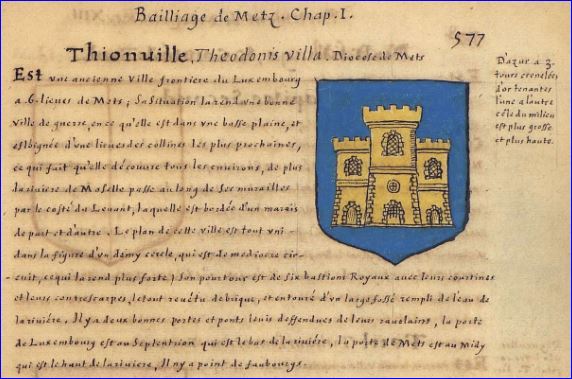 Bailliage de Metz. Chap. I.
577
Thionuille, Theodonis villa. Diocese de Mets
Est vne ancienne Ville frontiere du Luxembourg
a 6. lieues de Mets; Sa Situation la rend vne bonne
Ville de guerre, en ce qu'elle est dans vne basse plaine, et
esloignée d'vne lieue des collines les plus prochaines,
ce qui fait qu'elle découure tous les enuirons, de plus
la riuiere de Moselle passe au long de Ses murailles
par le costé du Leuant, laquelle est bordée d'un marais
de part et d'autre. Le plan de cette ville est tout vni
dans la figure d'vn demy cercle, qui est de mediocre cir-
-cuit, ce qui la rend plus forte; Son pourtour est de Six bastions Royaux avec leurs courtines
et leurs contrescarpes, le tout reuétu de brique, et entouré d'vn large fossé rempli de l'eau de
la riuiere. Il y a deux bonnes portes et ponts leuis deffendues de leurs raualains, la porte
de Luxembourg est au Septention qui est le bas de la riuiére, la porte de Mets est au Midy
qui est le haut de la riuiere, Il n'y a point de faubourgs.
D'azur a 3.
tours crenelées
d'or tenantes
l'une a l'autre
celle du milieu
est plus grosse
et plus haute.